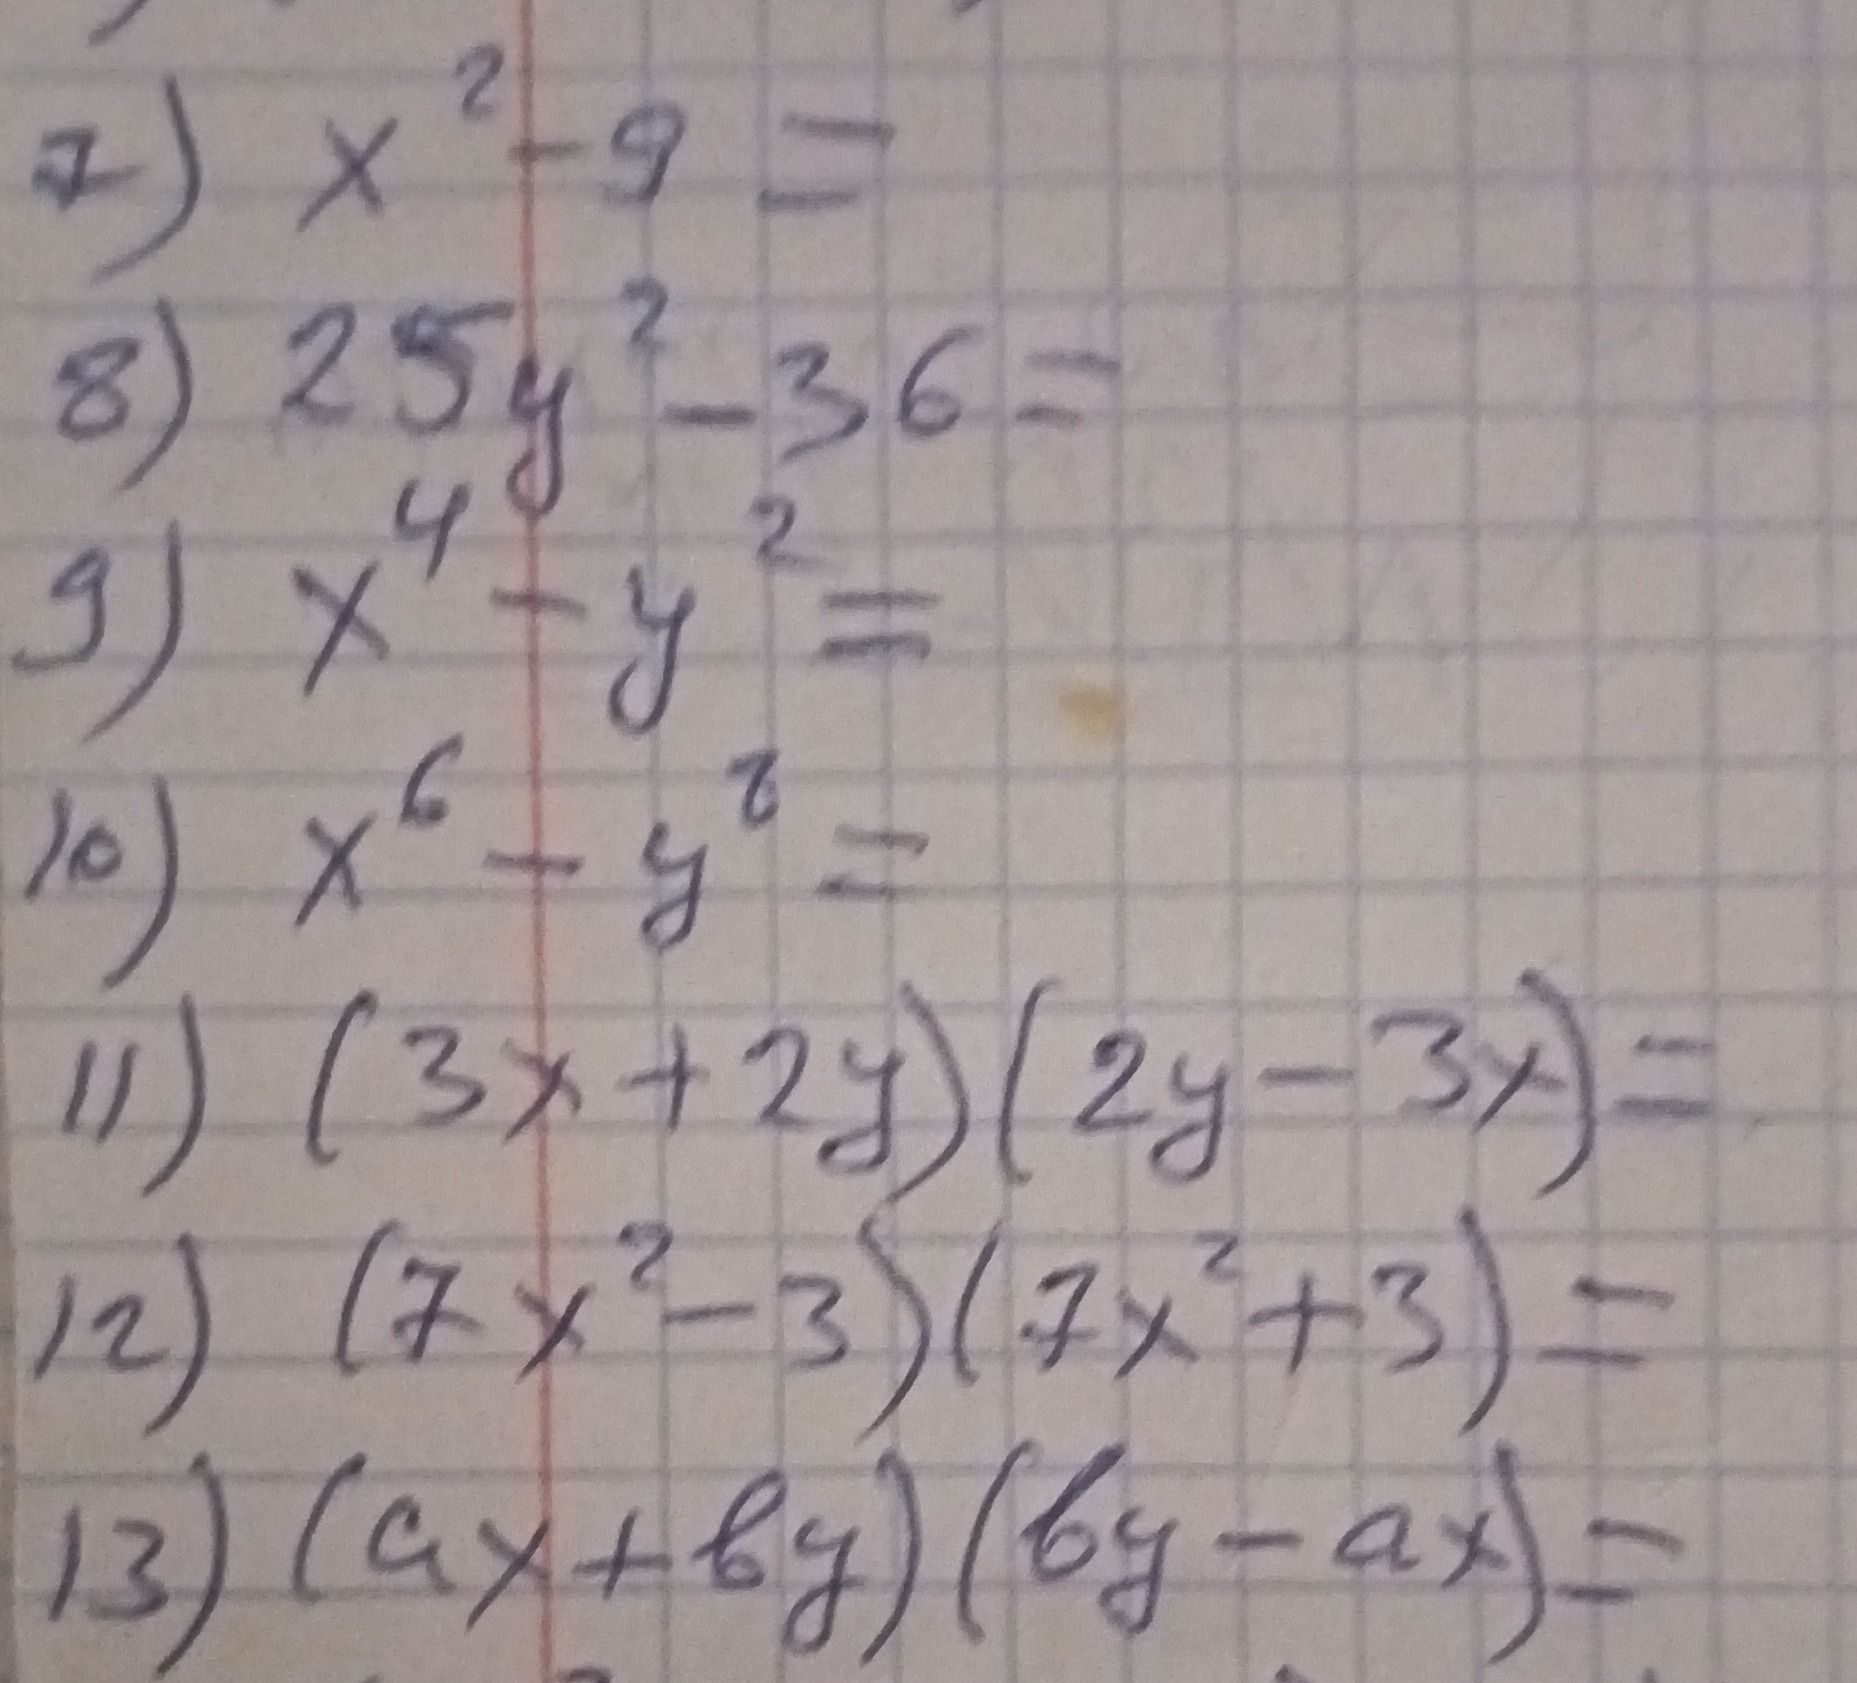 7) x² - 9 =
8) 25y² - 36 =
9) x⁴ - y² =
10) x⁶ - y⁸ =
11) (3x + 2y)(2y - 3x) =
12) (7x² - 3)(7x² + 3) =
13) (ax + by)(by - ax) =